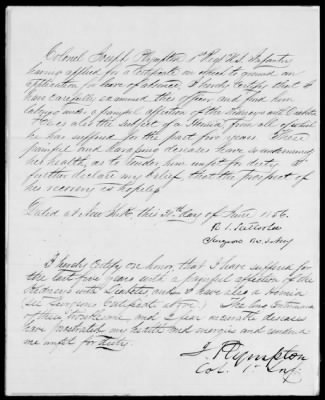 Colonel Joseph Plympton 1st Regt U.S. Infantry
having applied for a Certificate on which to ground an
application for leave of absence, I hereby Certify that I
have carefully examined this officer and find him
laboring under a painful affection of the Kidneys and Diabetes
He is also the subject of a Hernia, from all of which
he has suffered for the past five years. These
painful and harassing diseases have so undermined
his health, as to render him unfit for duty. I
further declare my belief that the prospect of
his recovery is hopeless
Dated at New York, this day of June 1856.
R. S. Satterlee
Surgeon U.S. Army
I hereby Certify on honor, that I have suffered for
the last five years with a painful affection of the
Kidneys with Diabetes and I have also a Hernia
(See Surgeons Certificate above). The
of these troublesome and diseases
have prostrated my health and energies and rendered
me unfit for duty.
J. Plympton
Col. 1st Inf.